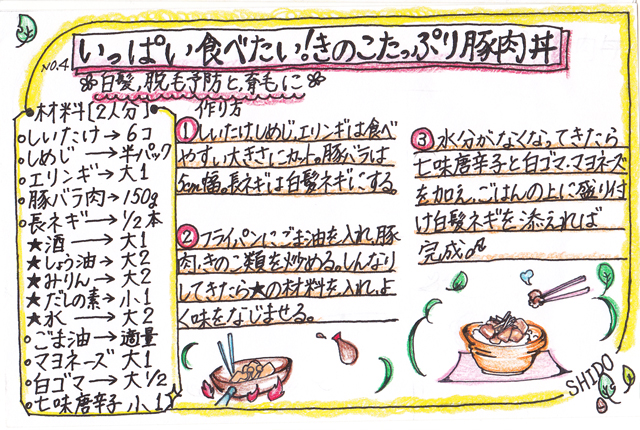 NO.4
いっぱい食べたい!きのこたっぷり豚肉丼
白髪,脱毛予防と,育毛に
材料[2人分]
しいたけ→6コ
しめじ→半パック
エリンギ→大1
豚バラ肉→150g
長ネギ→1/2本
★酒→大1
★しょう油→大2
★みりん→大2
★だしの素→小1
★水→大2
ごま油→適量
マヨネーズ→大1
白ゴマ→大1/2
七味唐辛子 小1
作り方
①しいたけ,しめじ,エリンギは食べ
やすい大きさにカット。豚バラは
5cm幅。長ネギは白髪ネギにする。
②フライパンにごま油を入れ,豚
肉,きのこ類を炒める。しんなり
してきたら★の材料を入れ,よ
く味をなじませる。
③水分がなくなってきたら
七味唐辛子と白ゴマ,マヨネーズ
を加え,ごはんの上に盛り付
け白髪ネギを添えれば
完成♪
SHIDO